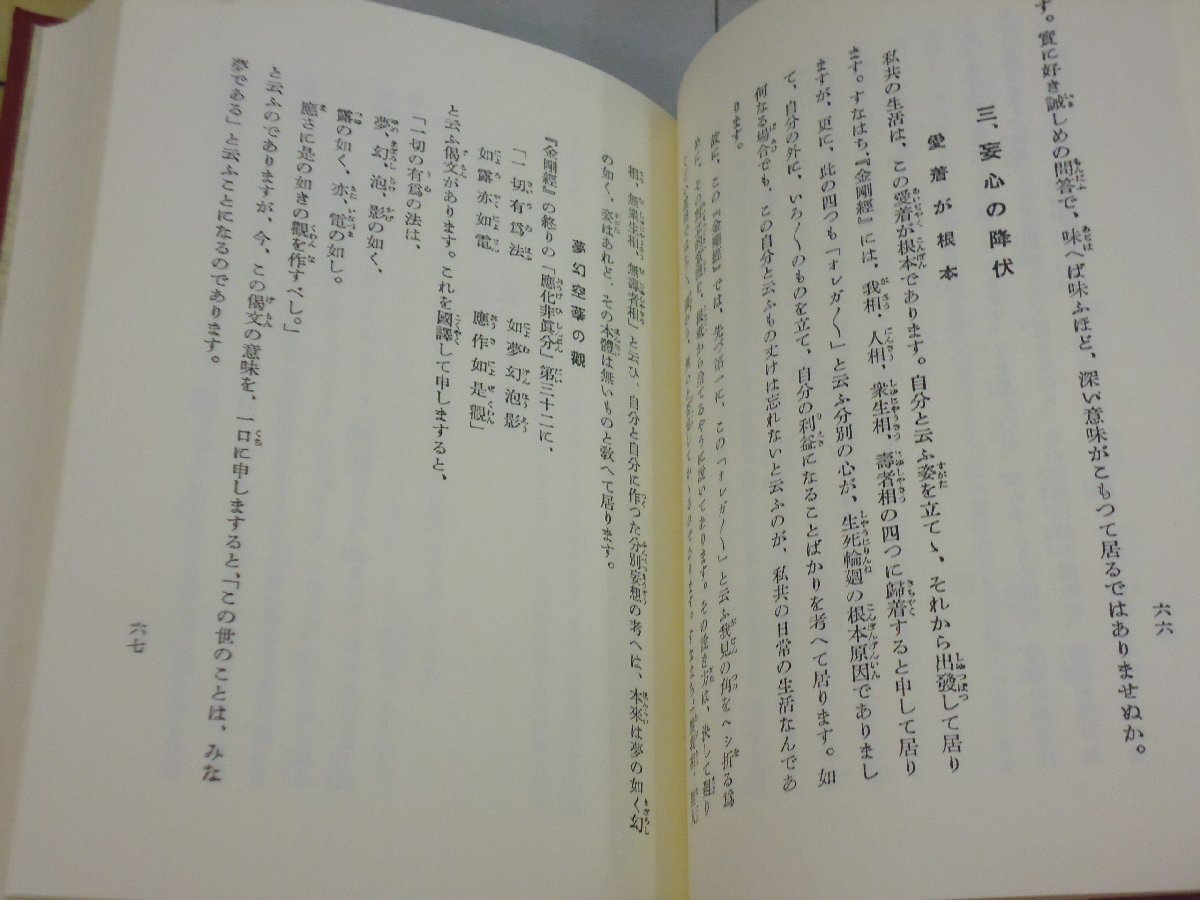 す。實に好き誡しめの問答で、味へば味ふほど、深い意味がこもつて居るではありませぬか。
三、妄心の降伏
愛着が根本
私共の生活は、この愛着が根本であります。自分と云ふ姿を立てゝ、それから出發して居り
ます。すなはち、『金剛經』には、我相、人相、衆生相、壽者相の四つに歸着すると申して居り
ますが、更に、此の四つも「オレガ〳〵」と云ふ分別の心が、生死輪廻の根本原因でありまし
て、自分の外に、いろ〳〵のものを立て、自分の利益になることばかりを考へて居ります。如
何なる場合でも、この自分と云ふもの丈けは忘れないと云ふのが、私共の日常の生活なんであ
ります。
故に、この『金剛經』では、先づ第一に、この「オレガ〳〵」と云ふ我見の角をヘシ折る爲
六六
相、無衆生相、無壽者相」と云ひ、自分と自分に作つた分別妄想の考へは、本來は夢の如く幻
の如く、姿はあれど、その本體は無いものと敎へて居ります。
夢幻空華の觀
『金剛經』の終りの「應化非眞分」第三十二に、
「一切有爲法　如夢幻泡影
如露亦如電　應作如是觀」
と云ふ偈文があります。これを國譯して申しますると、
「一切の有爲の法は、
夢、幻、泡、影の如く、
露の如く、亦、電の如し。
應さに是の如きの觀を作すべし。」
と云ふのでありますが、今、この偈文の意味を、一口に申しますると、「この世のことは、みな
夢である」と云ふことになるのであります。
六七